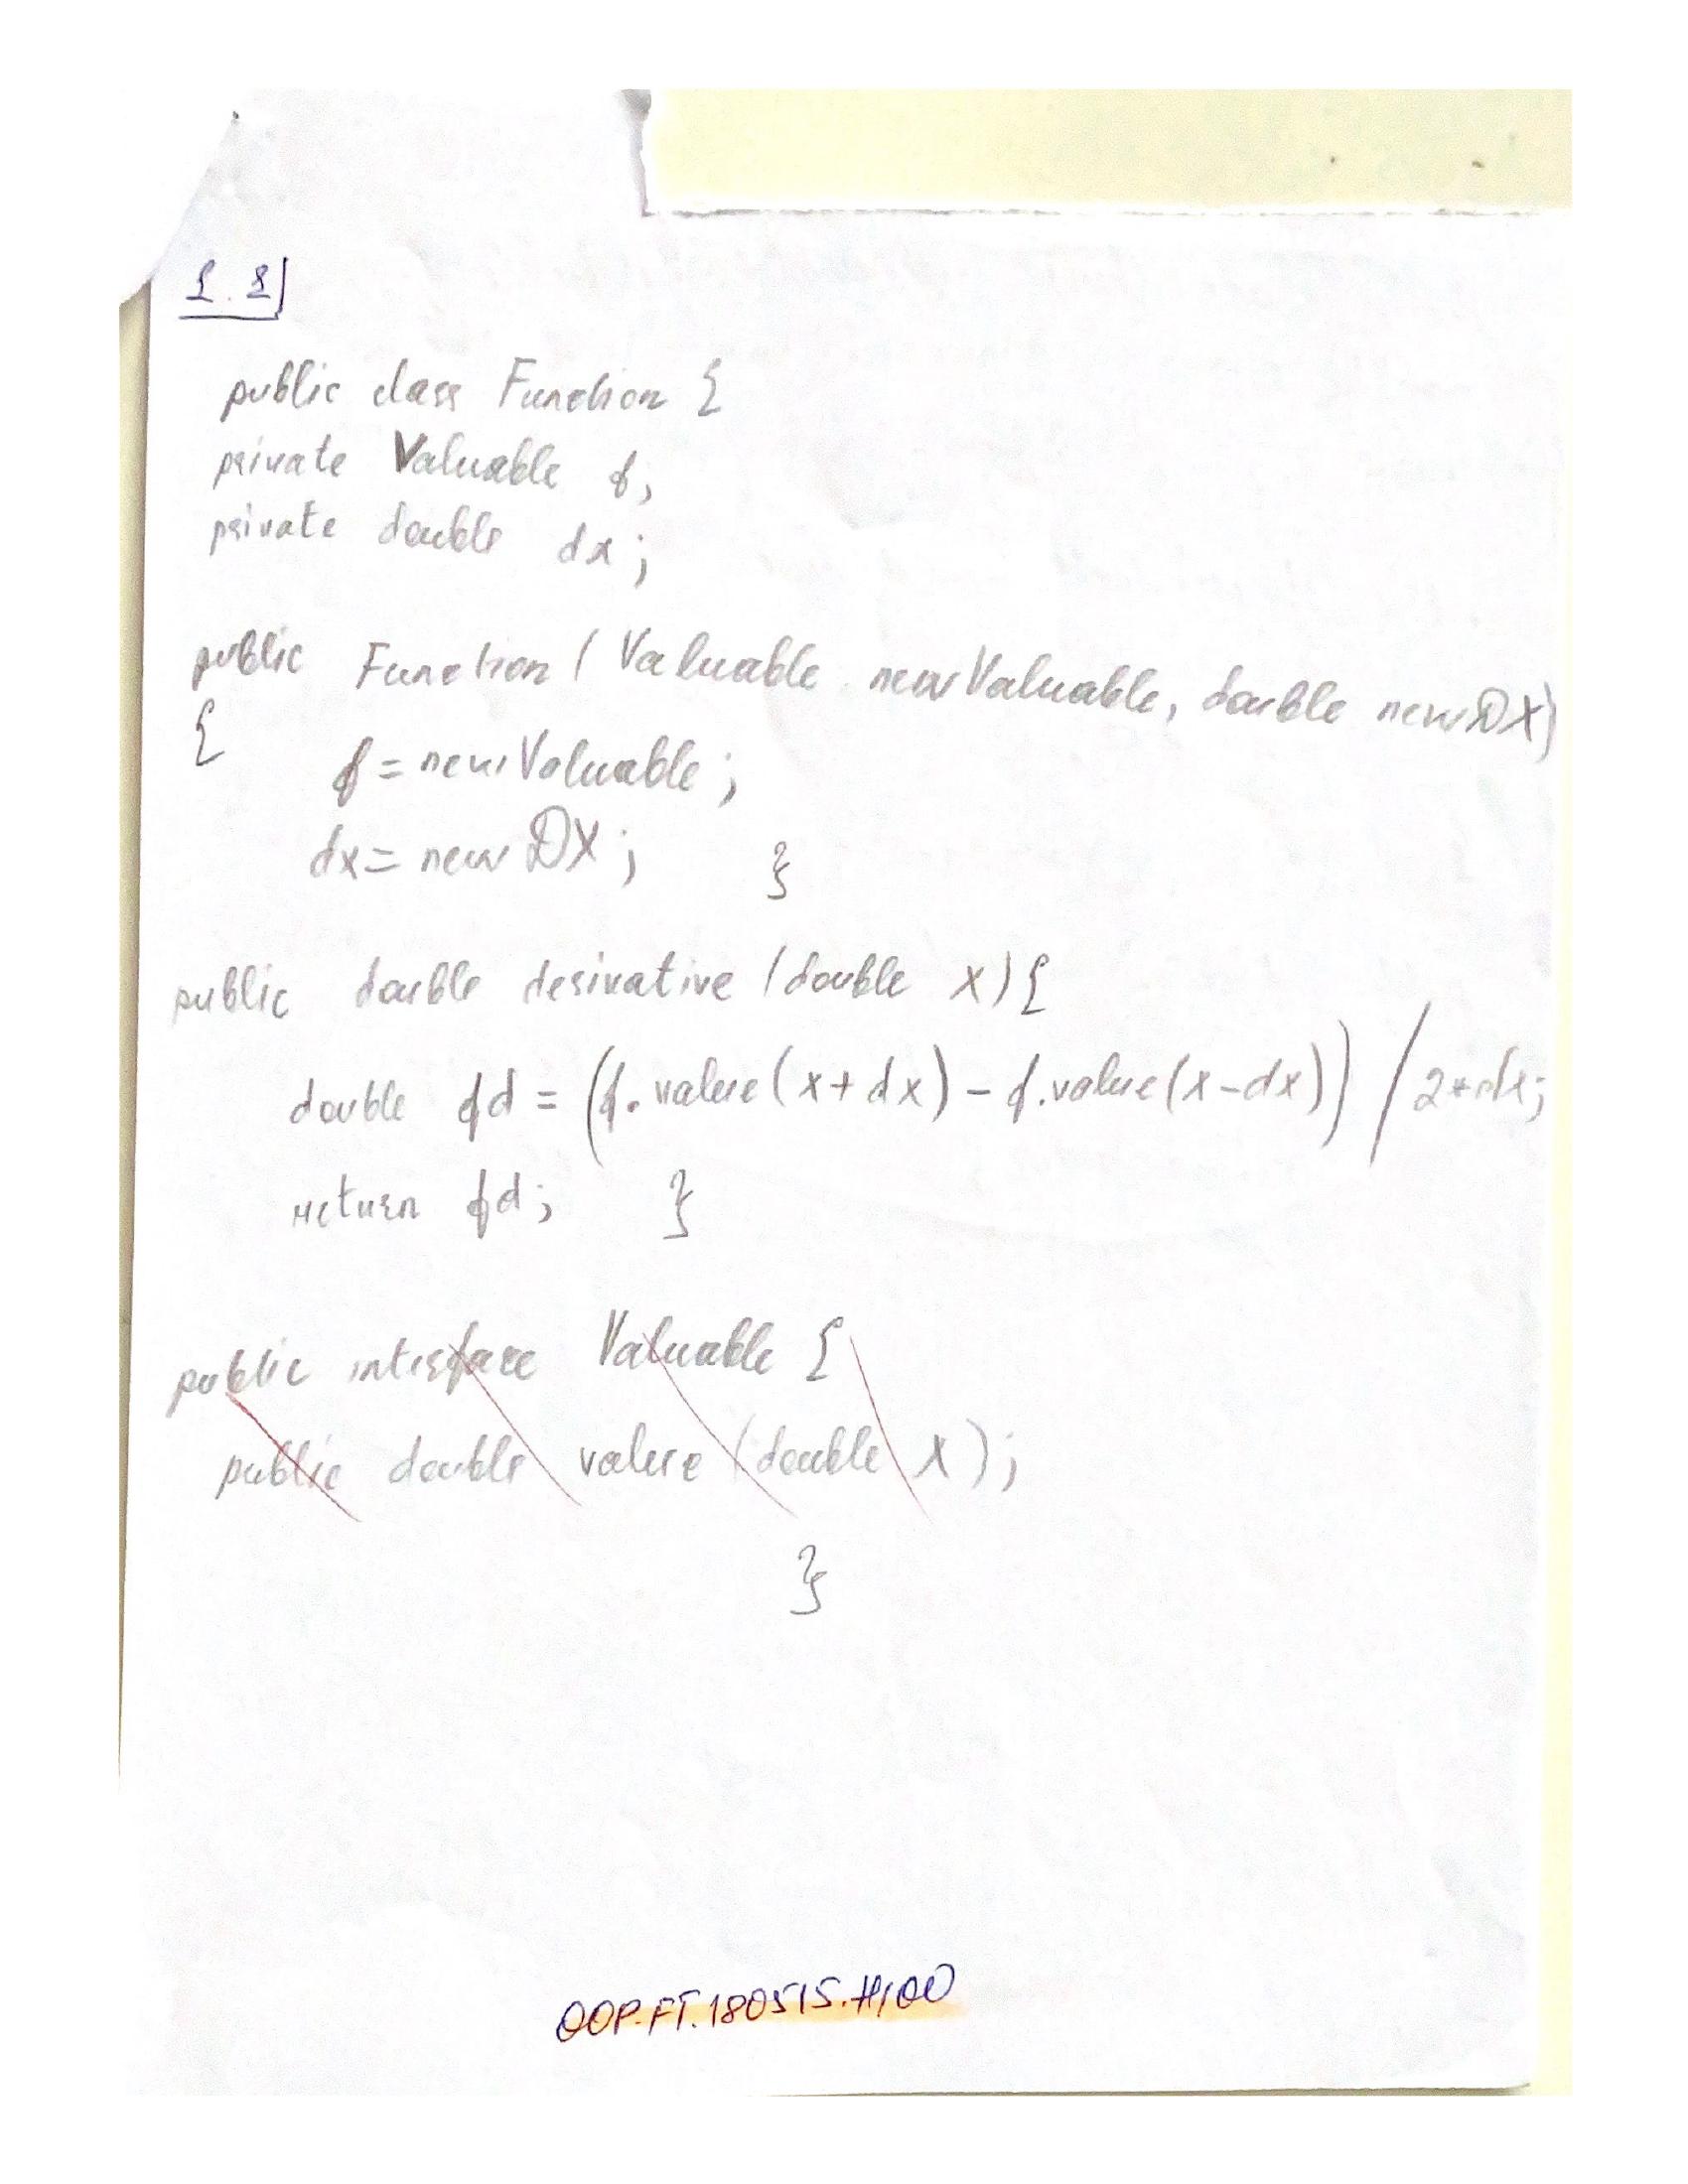 1.1
public class Function {
private Valuable f;
private double dx;
public Function ( Valuable newValuable, double newDX)
{ f = newValuable;
dx = newDX; }
public double derivative (double x) {
double fd = (f.value(x+dx) - f.value(x-dx)) / 2*dx;
return fd; }
public interface Valuable {
public double value (double x);
}
OOP.FT.180515.#100